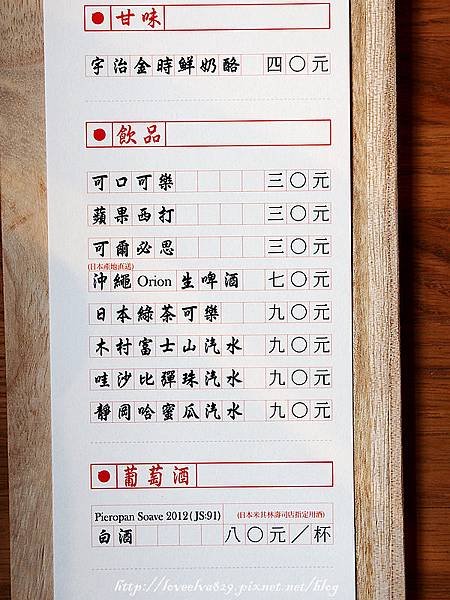 甘味
宇治金時鮮奶酪 四〇元
飲品
可口可樂 三〇元
蘋果西打 三〇元
可爾必思 三〇元
(日本產地直送)
沖繩 Orion 生啤酒 七〇元
日本綠茶可樂 九〇元
木村富士山汽水 九〇元
哇沙比彈珠汽水 九〇元
靜岡哈蜜瓜汽水 九〇元
葡萄酒
Pieropan Soave 2012 (JS:91) (日本米其林壽司店指定用酒)
白酒 八〇元／杯
http://loveelva829.pixnet.net/blog